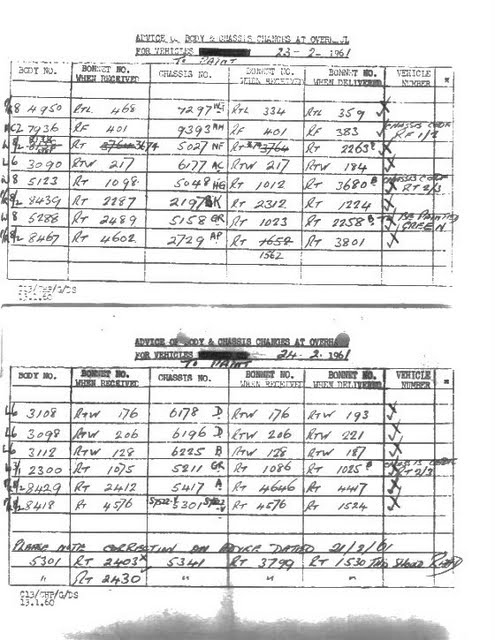 ADVICE OF BODY & CHASSIS CHANGES AT OVERHAUL
FOR VEHICLES 23-2-1961
TO PAINT
BODY NO. BONNET NO. WHEN RECEIVED CHASSIS NO. BONNET NO. WHEN RECEIVED BONNET NO. WHEN DELIVERED VEHICLE NUMBER
8 4950 RTL 468 7297 RTL 334 RTL 359 X
7936 RF 401 9393 RM RF 401 RF 383 X CHASSIS CODE RF 1/2
RT 3764 3674 5027 NF RT 3764 RT 2263 X
L6 3090 RTW 217 6177 AC RTW 217 RTW 184 X
8 5123 RT 1098 5048 HG RT 1012 RT 3680 B X CHASSIS CODE RT 2/3
8439 RT 2287 2197 RT 2312 RT 1224 X
8 5288 RT 2489 5158 GR RT 1023 RT 2258 B X TO BE PAINTED GREEN
8467 RT 4602 2729 AP RT 1652 RT 3801 X
1562
C13/CHP/G/DS
13.1.60
ADVICE OF BODY & CHASSIS CHANGES AT OVERHAUL
FOR VEHICLES 24-2-1961
TO PAINT
BODY NO. BONNET NO. WHEN RECEIVED CHASSIS NO. BONNET NO. WHEN RECEIVED BONNET NO. WHEN DELIVERED VEHICLE NUMBER
L6 3108 RTW 176 6178 D RTW 176 RTW 193 X
L6 3098 RTW 206 6196 D RTW 206 RTW 221 X
L6 3112 RTW 128 6225 B RTW 128 RTW 187 X
2300 RT 1075 5211 GR RT 1086 RT 1025 B X CHASSIS CODE RT 2/3
8429 RT 2412 5417 A RT 4646 RT 4417 X
8418 RT 4576 5301 RT 4576 RT 1524 X
PLEASE NOTE CORRECTION ON ADVICE DATED 21/2/61
5301 RT 2403 X 5341 RT 3799 RT 1530 THIS SHOULD READ
" RT 2430 " " "
C13/CHP/G/DS
13.1.60